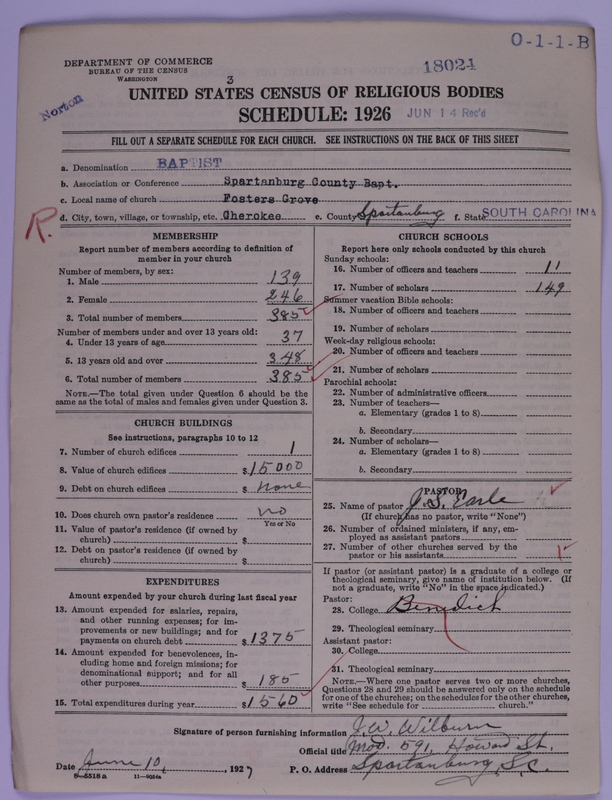 O-1-1-B
DEPARTMENT OF COMMERCE
BUREAU OF THE CENSUS
WASHINGTON
18024
3
Norton
UNITED STATES CENSUS OF RELIGIOUS BODIES
SCHEDULE: 1926 JUN 14 Rec'd
FILL OUT A SEPARATE SCHEDULE FOR EACH CHURCH. SEE INSTRUCTIONS ON THE BACK OF THIS SHEET
a. Denomination BAPTIST
b. Association or Conference Spartanburg County Bapt.
c. Local name of church Fosters Grove
d. City, town, village, or township, etc. Cherokee e. County Spartanburg f. State SOUTH CAROLINA
R.
MEMBERSHIP
Report number of members according to definition of
member in your church
Number of members, by sex:
1. Male 139
2. Female 246
3. Total number of members 385
Number of members under and over 13 years old:
4. Under 13 years of age 37
5. 13 years old and over 348
6. Total number of members 385
NOTE.—The total given under Question 6 should be the
same as the total of males and females given under Question 3.
CHURCH BUILDINGS
See instructions, paragraphs 10 to 12
7. Number of church edifices 1
8. Value of church edifices $15000
9. Debt on church edifices $ none
10. Does church own pastor's residence? no
Yes or No
11. Value of pastor's residence (if owned by
church) $
12. Debt on pastor's residence (if owned by
church) $
EXPENDITURES
Amount expended by your church during last fiscal year
13. Amount expended for salaries, repairs,
and other running expenses; for im-
provements or new buildings; and for
payments on church debt $1375
14. Amount expended for benevolences, in-
cluding home and foreign missions; for
denominational support; and for all
other purposes $185
15. Total expenditures during year $1560
CHURCH SCHOOLS
Report here only schools conducted by this church
Sunday schools:
16. Number of officers and teachers 11
17. Number of scholars 149
Summer vacation Bible schools:
18. Number of officers and teachers
19. Number of scholars
Week-day religious schools:
20. Number of officers and teachers
21. Number of scholars
Parochial schools:
22. Number of administrative officers
23. Number of teachers—
a. Elementary (grades 1 to 8)
b. Secondary
24. Number of scholars—
a. Elementary (grades 1 to 8)
b. Secondary
PASTOR
25. Name of pastor J. S. Earle
(If church has no pastor, write "None")
26. Number of ordained ministers, if any, em-
ployed as assistant pastors
27. Number of other churches served by the
pastor or his assistants
If pastor (or assistant pastor) is a graduate of a college or
theological seminary, give name of institution below. (If
not a graduate, write "No" in the space indicated.)
Pastor:
28. College Benedict
29. Theological seminary
Assistant pastor:
30. College
31. Theological seminary
NOTE.—Where one pastor serves two or more churches,
Questions 28 and 29 should be answered only on the schedule
for one of the churches; on the schedules for the other churches,
write "See schedule for church."
Signature of person furnishing information J. W. Wilburn
Official title Mod. 591, Howard St.
Date June 10, 1927 P. O. Address Spartanburg, S.C.
8-5518a 11-9014a